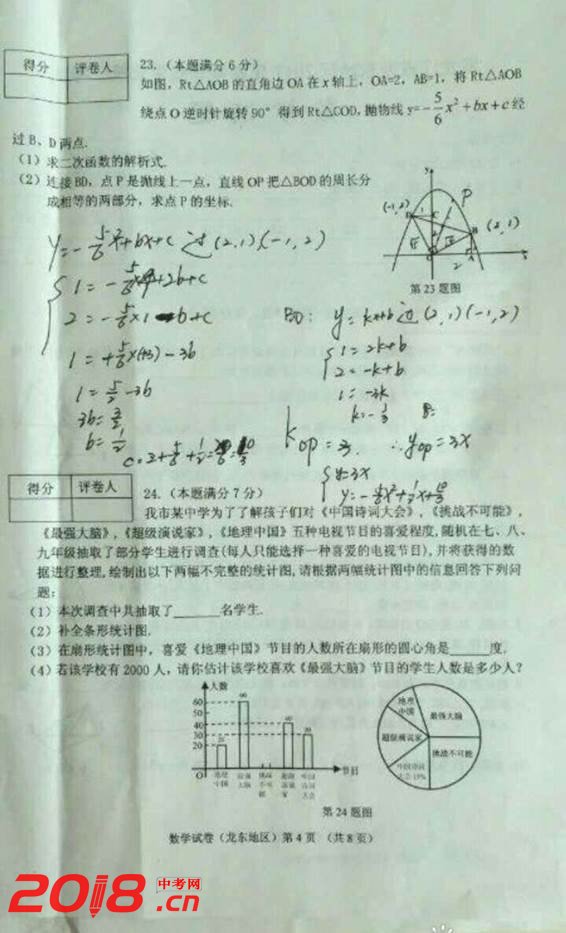 得分 评卷人
23.（本题满分6分）
如图，Rt△AOB的直角边OA在x轴上，OA=2，AB=1，将Rt△AOB
绕点O逆时针旋转90°得到Rt△COD，抛物线y=-5/6x²+bx+c经
过B、D两点.
(1) 求二次函数的解析式.
(2) 连接BD，点P是抛线上一点，直线OP把△BOD的周长分
成相等的两部分，求点P的坐标.
(-1,2) P (2,1)
第23题图
y=-5/6x²+bx+c 过(2,1)(-1,2)
2=-5/6×1-b+c
BD: y=kx+b过(2,1)(-1,2)
1=2k+b
2=-k+b
1=5/2-3b
1=-3k
k=-1/3
3b=3/2
b=1/2
kop=3 ∴yop=3x
y=3x
y=-5/6x²+1/2x+10/3
得分 评卷人
24.（本题满分7分）
我市某中学为了了解孩子们对《中国诗词大会》，《挑战不可能》，
《最强大脑》，《超级演说家》，《地理中国》五种电视节目的喜爱程度，随机在七、八、
九年级抽取了部分学生进行调查(每人只能选择一种喜爱的电视节目)，并将获得的数
据进行整理，绘制出以下两幅不完整的统计图，请根据两幅统计图中的信息回答下列问
题：
(1) 本次调查中共抽取了______名学生.
(2) 补全条形统计图.
(3) 在扇形统计图中，喜爱《地理中国》节目的人数所在扇形的圆心角是______度.
(4) 若该学校有2000人，请你估计该学校喜欢《最强大脑》节目的学生人数是多少人？
人数
60
50
40
30
20
O
节目
地理中国
最强大脑
超级演说家
挑战不可能
第24题图
数学试卷（龙东地区）第4页 （共8页）
2018.cn
中考网